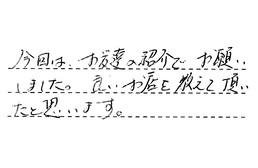 今回は、お友達の紹介で お願い
しました。良いお店を教えて頂い
たと思います。